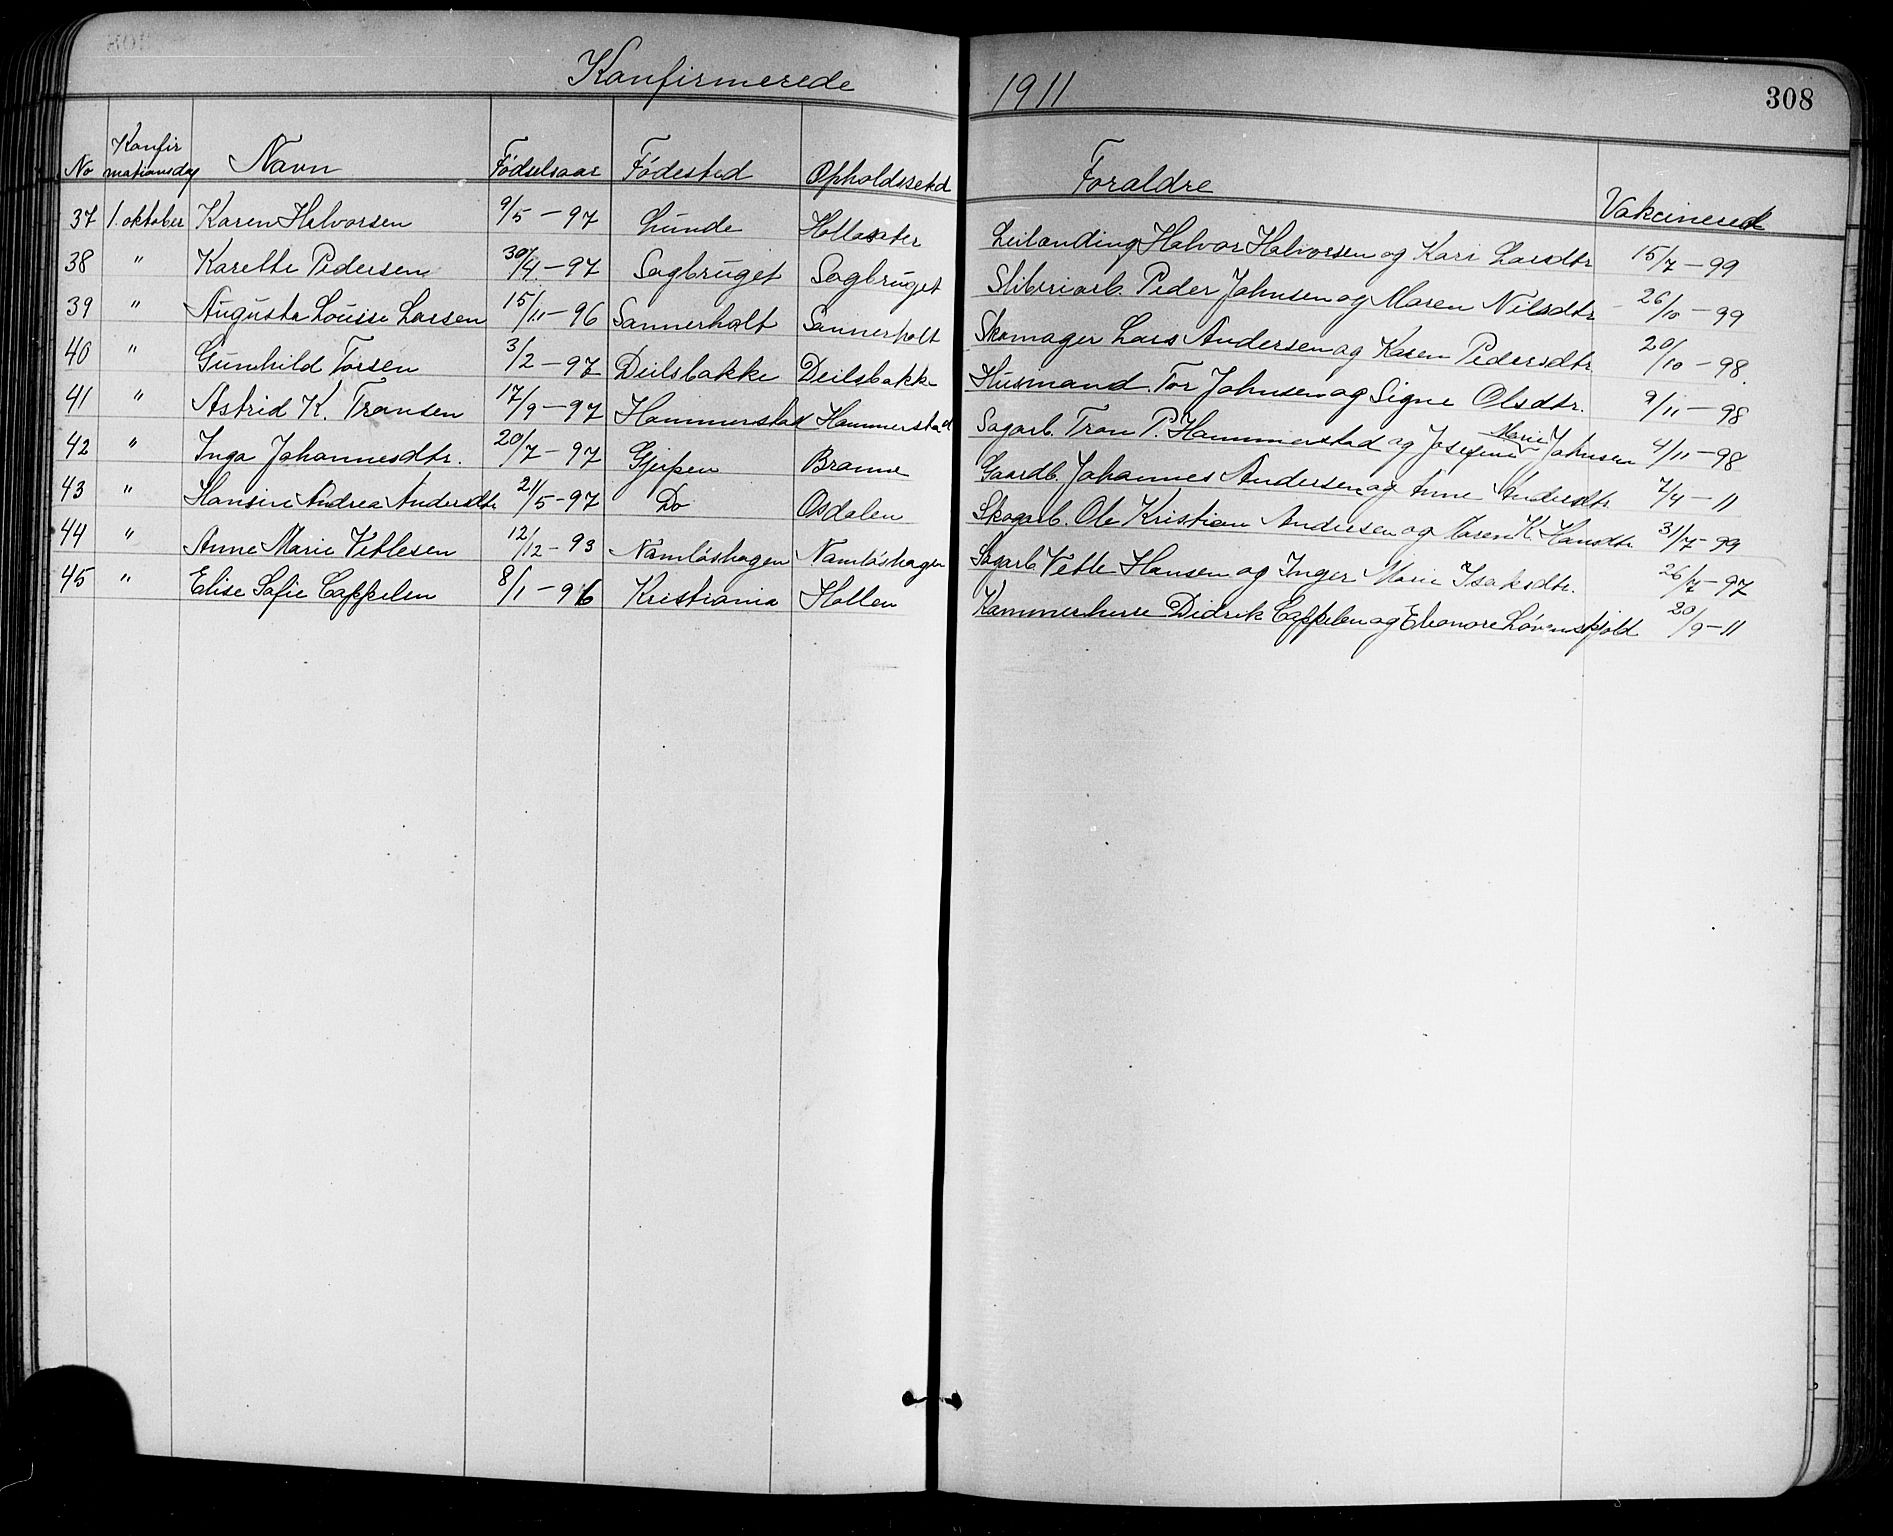 Konfirmerede 1911 308
No Konfirmationsdag Navn Födselsaar Födested Opholdssted Foraldre Vakcinered
37 1. oktober Karen Halvorsen 9/5 - 97 Lunde Hollasæter Leilanding Halvor Halvorsen og Kari Larsdtr 15/7 - 99
38 " Karette Pedersen 30/4 - 97 Sagbruget Sagbruget Sliberiarb. Peder Johnsen og Maren Nilsdtr - 26/10 - 99
39 " Augusta Louise Larsen 15/11 - 96 Sannerholt Sannerholt Skomager Lars Andersen og Karen Pedersdtr 20/10 - 98.
40 " Gunhild Torsen 3/2 - 97 Deilsbakke Deilsbakke Husmand. Tor Johnsen og Signe Olsdtr. 9/11 - 98
41 " Astrid K. Transen 17/9 - 97 Hammerstad Hammerstad Sagarb. Tran P. Hammerstad og Josefine Marie Johnsen 4/11 - 98
42 " Inga Johannesdtr. 20/7 - 97 Gjerpen Branne Gaardb. Johannes Andersen og Anne Andersdtr. 7/4 - 11
43 " Hansine Andrea Andersdtr 21/5 - 97 Do Osdalen Skogarb. Ole Kristian Andersen og Maren K. Hansdtr 31/7 - 99
44 " Anne Marie Vetlesen 12/12 - 93 Namlöshagen Namlöshagen Sagarb Vetle Hansen og Inger Marie Isaksdtr. 26/7 - 97
45 " Elise Sofie Cappelen 8/1 - 96 Kristiania Hollen Kammerherre Didrik Cappelen og Eleonore Lövenskjold 20/9 - 11